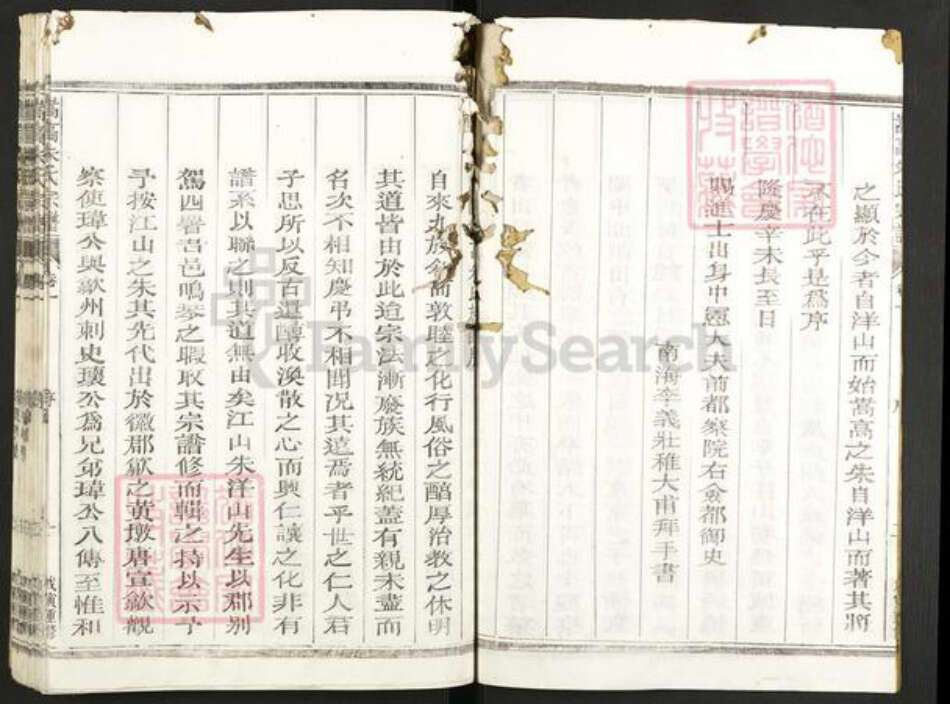 之顯於今者自洋山而始嵩高之朱自洋山而著其將
在此乎是爲序
隆慶辛未長至日
賜進士出身中憲大夫前都察院右僉都御史
南海李義壯稚大甫拜手書
自來九族 敦睦之化行風俗之醇厚治教之休明
其道皆由於此迨宗法漸廢族無統紀蓋有親未盡而
名次不相知慶弔不相聞况其遠焉者乎世之仁人君
子思所以反古還醇收渙散之心而興仁讓之化非有
譜系以聯之則其道無由矣江山朱洋山先生以郡别
駕四署吾邑鳴琴之暇取其宗譜修而輯之持以示予
予按江山之朱其先代出於徽郡歙之黃墩唐宣歙觀
察使瑋公與歙州刺史瓌公爲兄弟瑋公八傳至惟和
FamilySearch